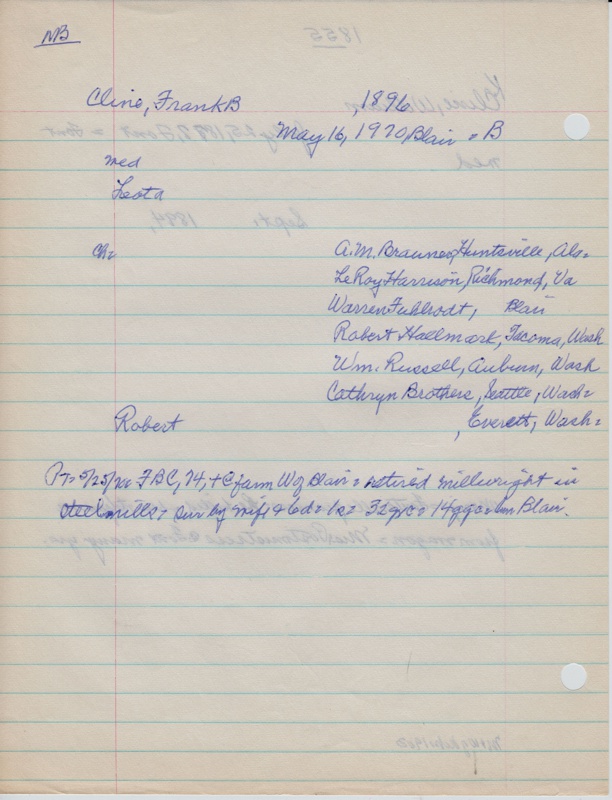 NB
Cline, Frank B , 1896
May 16, 1970, Blair = B
med
Leota
ch=
A.M. Brauner, Huntsville, Ala=
LeRoy Harrison, Richmond, Va
Warren Fuhlrodt, Blair
Robert Hallmark, Tacoma, Wash
Wm. Russell, Auburn, Wash
Cathryn Brothers, Seattle, Wash=
Robert , Everett, Wash=
PT= 5/25/70 FBC, 74, + @ farm W of Blair = retired millwright in
steel mills = sur by wife & 6d = 1s = 32 gc = 14 ggc = in Blair.
1855
Sept, 1884,